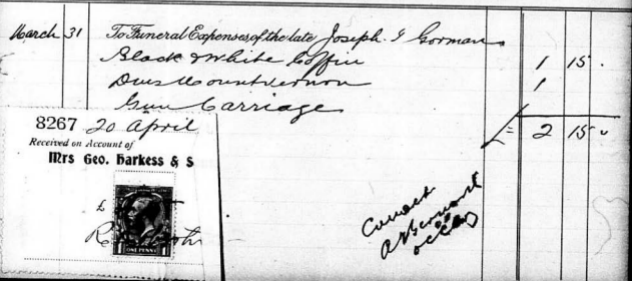 March 31 To Funeral Expenses of the late Joseph J Gorman
Black & White Coffin 1 15 .
Dues Mount Vernon 1
Gun Carriage
= 2 15 0
8267 20 April
Received on Account of
Mrs Geo. Harkess & S
£
ONE PENNY
Correct